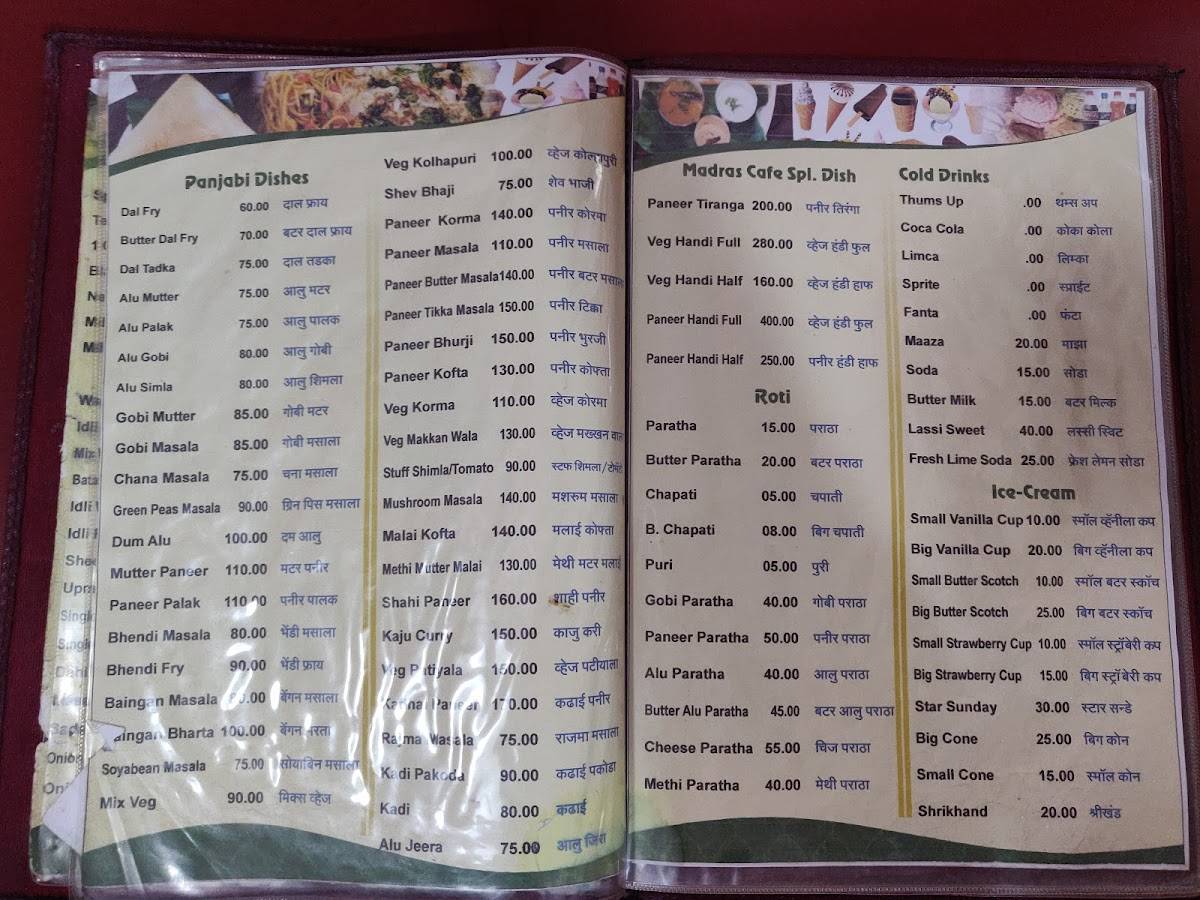 Panjabi Dishes
Dal Fry 60.00 दाल फ्राय
Butter Dal Fry 70.00 बटर दाल फ्राय
Dal Tadka 75.00 दाल तडका
Alu Mutter 75.00 आलु मटर
Alu Palak 75.00 आलु पालक
Alu Gobi 80.00 आलु गोबी
Alu Simla 80.00 आलु शिमला
Gobi Mutter 85.00 गोबी मटर
Gobi Masala 85.00 गोबी मसाला
Chana Masala 75.00 चना मसाला
Green Peas Masala 90.00 ग्रिन पिस मसाला
Dum Alu 100.00 दम आलु
Mutter Paneer 110.00 मटर पनीर
Paneer Palak 110.00 पनीर पालक
Bhendi Masala 80.00 भेंडी मसाला
Bhendi Fry 90.00 भेंडी फ्राय
Baingan Masala बेंगन मसाला
Bharta 100.00 बेंगन
Soyabean Masala 75.00 सोयाबिन मसाला
Mix Veg 90.00 मिक्स व्हेज
Veg Kolhapuri 100.00 व्हेज कोल्हापुरी
Shev Bhaji 75.00 शेव भाजी
Paneer Korma 140.00 पनीर कोरमा
Paneer Masala 110.00 पनीर मसाला
Paneer Butter Masala 140.00 पनीर बटर मसाला
Paneer Tikka Masala 150.00 पनीर टिक्का
Paneer Bhurji 150.00 पनीर भुरजी
Paneer Kofta 130.00 पनीर कोफ्ता
Veg Korma 110.00 व्हेज कोरमा
Veg Makkan Wala 130.00 व्हेज मख्खन वाला
Stuff Shimla/Tomato 90.00 स्टफ शिमला/
Mushroom Masala 140.00 मशरुम मसाला
Malai Kofta 140.00 मलाई कोफ्ता
Methi Mutter Malai 130.00 मेथी मटर मलाई
Shahi Paneer 160.00 शाही पनीर
Kaju Curry 150.00 काजु करी
Veg Patiyala 150.00 व्हेज पटीयाला
Kadhai Paneer 170.00 कढाई पनीर
Rajma Masala 75.00 राजमा मसाला
Kadi Pakoda 90.00 कढाई पकोडा
Kadi 80.00 कढाई
Alu Jeera 75.00 आलु जिरा
Madras Cafe Spl. Dish
Paneer Tiranga 200.00 पनीर तिरंगा
Veg Handi Full 280.00 व्हेज हंडी फुल
Veg Handi Half 160.00 व्हेज हंडी हाफ
Paneer Handi Full 400.00 व्हेज हंडी फुल
Paneer Handi Half 250.00 पनीर हंडी हाफ
Roti
Paratha 15.00 पराठा
Butter Paratha 20.00 बटर पराठा
Chapati 05.00 चपाती
B. Chapati 08.00 बिग चपाती
Puri 05.00 पुरी
Gobi Paratha 40.00 गोबी पराठा
Paneer Paratha 50.00 पनीर पराठा
Alu Paratha 40.00 आलु पराठा
Butter Alu Paratha 45.00 बटर आलु पराठा
Cheese Paratha 55.00 चिज पराठा
Methi Paratha 40.00 मेथी पराठा
Cold Drinks
Thums Up .00 थम्स अप
Coca Cola .00 कोका कोला
Limca .00 लिम्का
Sprite .00 स्प्राईट
Fanta .00 फंटा
Maaza 20.00 माझा
Soda 15.00 सोडा
Butter Milk 15.00 बटर मिल्क
Lassi Sweet 40.00 लस्सी स्विट
Fresh Lime Soda 25.00 फ्रेश लेमन सोडा
Ice-Cream
Small Vanilla Cup 10.00 स्मॉल व्हॅनीला कप
Big Vanilla Cup 20.00 बिग व्हॅनीला कप
Small Butter Scotch 10.00 स्मॉल बटर स्कॉच
Big Butter Scotch 25.00 बिग बटर स्कॉच
Small Strawberry Cup 10.00 स्मॉल स्ट्रॉबेरी कप
Big Strawberry Cup 15.00 बिग स्ट्रॉबेरी कप
Star Sunday 30.00 स्टार सन्डे
Big Cone 25.00 बिग कोन
Small Cone 15.00 स्मॉल कोन
Shrikhand 20.00 श्रीखंड